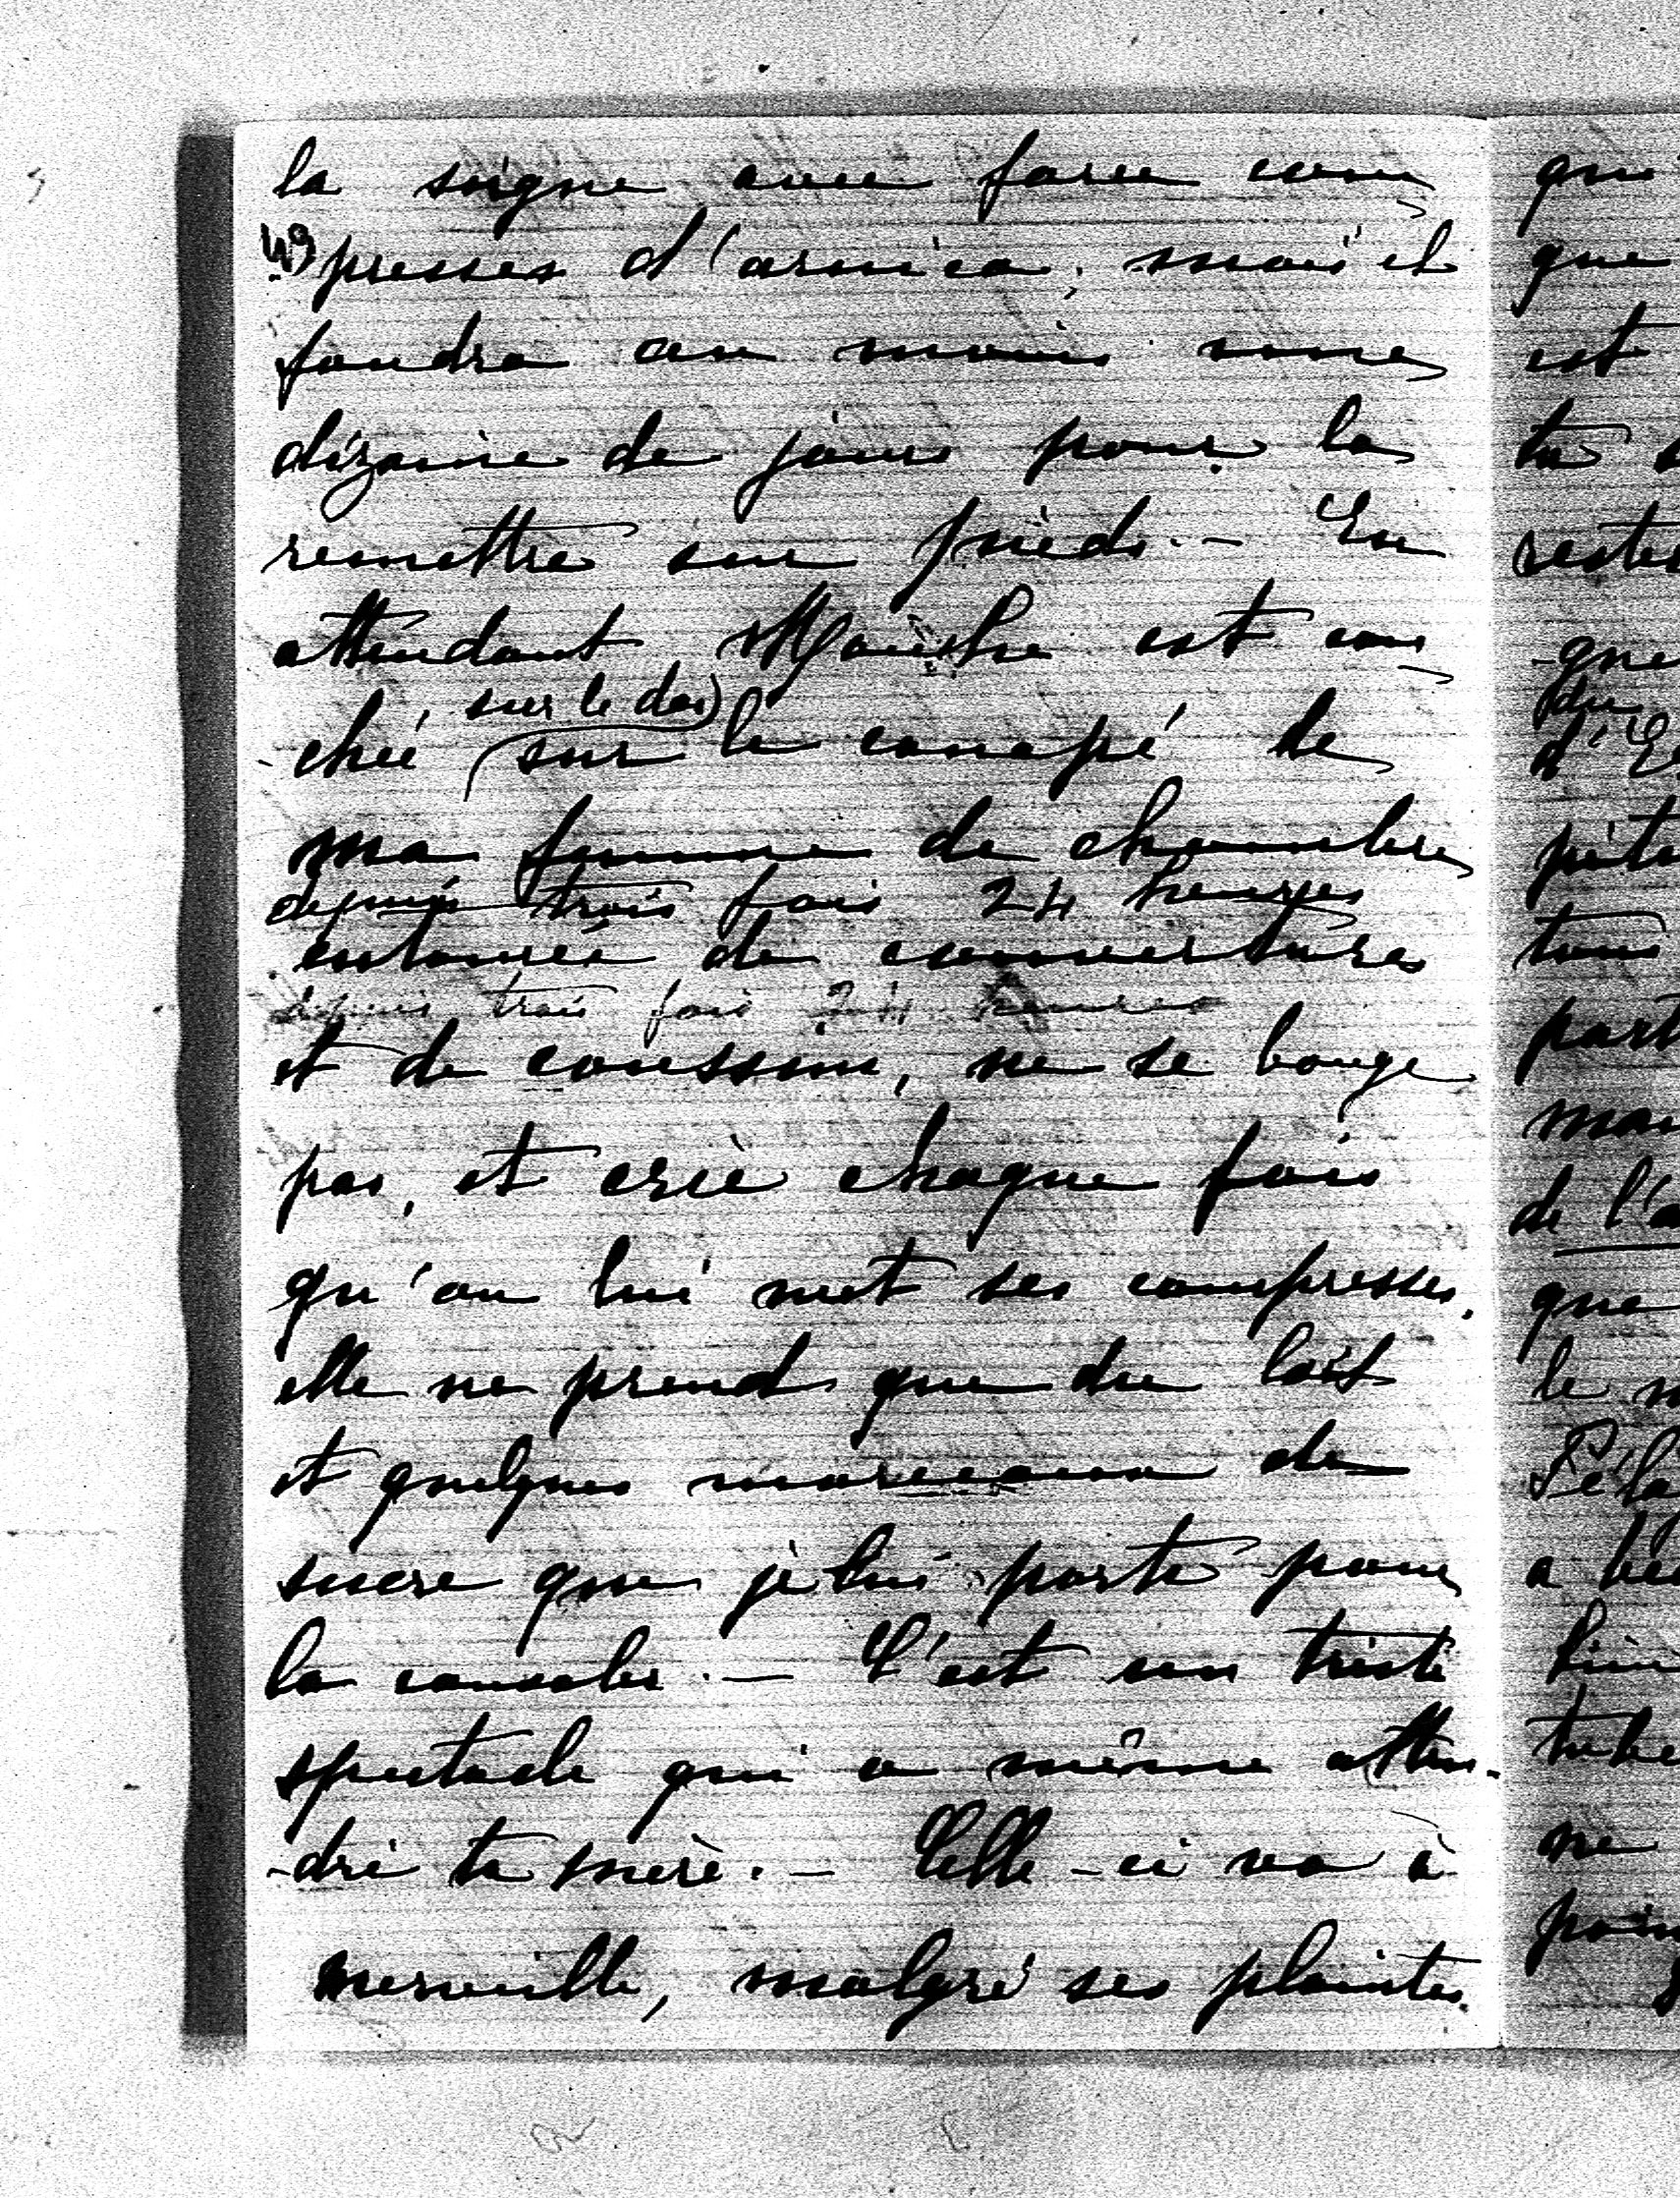 la soigne avec force com
49 presses d'arnica, mais il
faudra au moins une
dizaine de jours pour la
remettre sur pieds. — En
attendant est cou
sur le dos
-chée sur le canapé de
ma femme de chambre
depuis trois fois 24 heures
entourée de couvertures
depuis trois fois 24 heures
et de coussins, ne se bouge
pas, et crie chaque fois
qu'on lui met ses compresses.
elle ne prend que du lait
et quelques morceaux de
sucre que je lui porte pour
la consoler. — C'est un triste
spectacle qui a même atten-
-dri ta mère. — Celle-ci va à
merveille, malgré ses plaintes.
que
que
est
tu
-que
du
tous
part
de l'a
que
le
a
ne